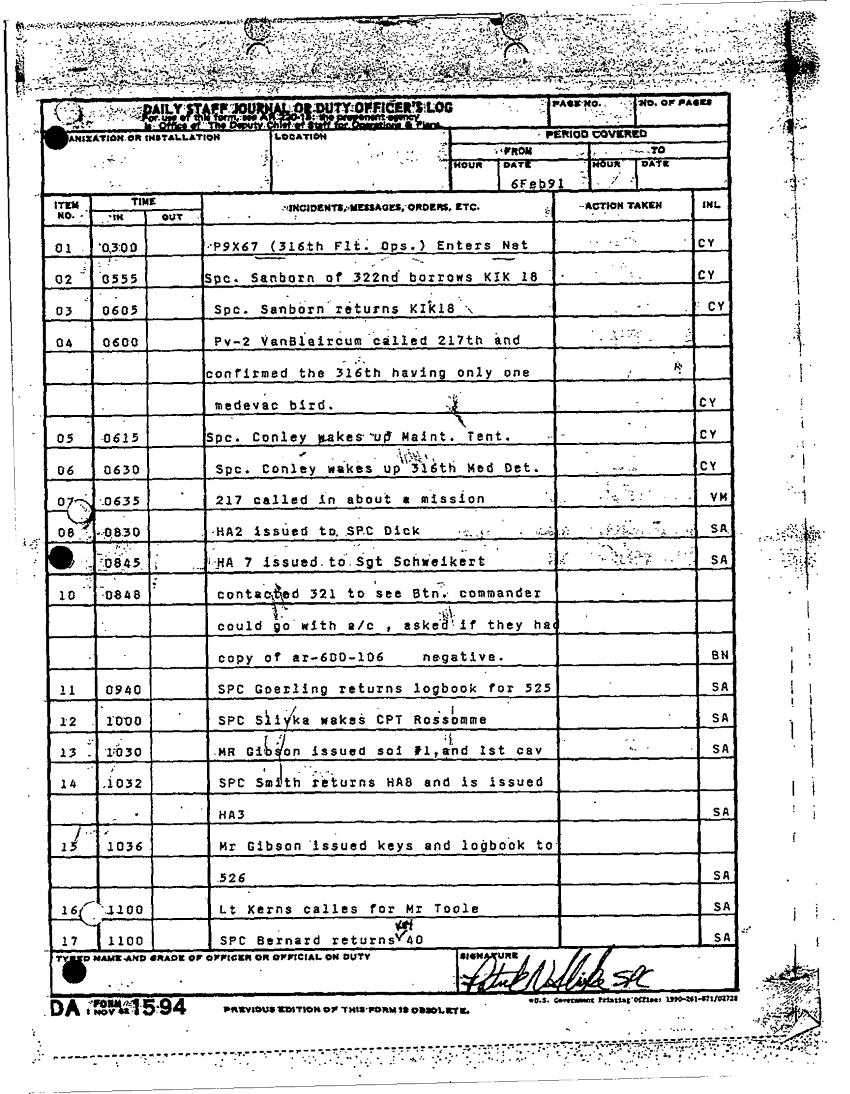 DAILY STAFF JOURNAL OR DUTY OFFICER'S LOG
For use of this form, see AR 220-15; the proponent agency
is Office of The Deputy Chief of Staff for Operations & Plans.
PAGE NO.
NO. OF PAGES
ANIZATION OR INSTALLATION
LOCATION
PERIOD COVERED
FROM
TO
HOUR
DATE
HOUR
DATE
6Feb91
ITEM NO.
TIME
IN
OUT
INCIDENTS, MESSAGES, ORDERS, ETC.
ACTION TAKEN
INL
01 0300 P9X67 (316th Flt. Ops.) Enters Net CY
02 0555 Spc. Sanborn of 322nd borrows KIK 18 CY
03 0605 Spc. Sanborn returns KIK18 CY
04 0600 Pv-2 VanBlaircum called 217th and
confirmed the 316th having only one
medevac bird. CY
05 0615 Spc. Conley wakes up Maint. Tent. CY
06 0630 Spc. Conley wakes up 316th Med Det. CY
07 0635 217 called in about a mission VM
08 0830 HA2 issued to SPC Dick SA
0845 HA 7 issued to Sgt Schweikert SA
10 0848 contacted 321 to see Btn. commander
could go with a/c , asked if they had
copy of ar-600-106 negative. BN
11 0940 SPC Goerling returns logbook for 525 SA
12 1000 SPC Slivka wakes CPT Rossomme SA
13 1030 MR Gibson issued soi #1,and 1st cav SA
14 1032 SPC Smith returns HA8 and is issued
HA3 SA
15 1036 Mr Gibson issued keys and logbook to
526 SA
16 1100 Lt Kerns calles for Mr Toole SA
key
17 1100 SPC Bernard returns 40 SA
TYPED NAME AND GRADE OF OFFICER OR OFFICIAL ON DUTY
SIGNATURE
SPC
DA FORM 1594
1 NOV 62
PREVIOUS EDITION OF THIS FORM IS OBSOLETE.
*U.S. Government Printing Office: 1990-261-871/02728